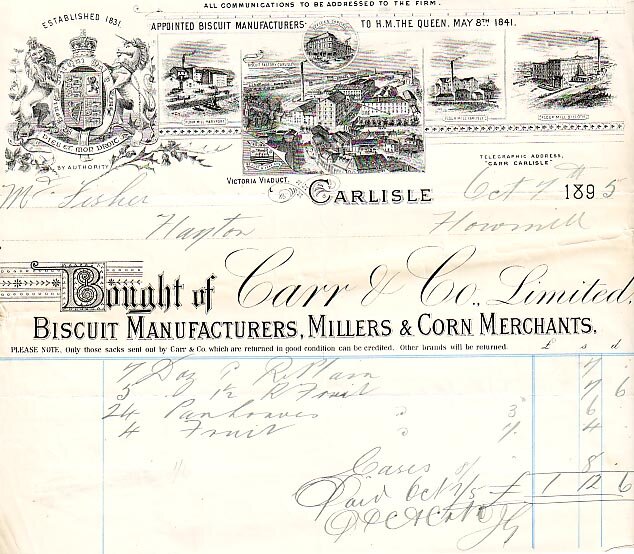 ALL COMMUNICATIONS TO BE ADDRESSED TO THE FIRM.
ESTABLISHED 1831.
APPOINTED BISCUIT MANUFACTURERS TO H.M. THE QUEEN, MAY 8TH 1841.
DIEU ET MON DROIT
BY AUTHORITY
BISCUIT FACTORY CARLISLE
VICTORIA VIADUCT.
CARLISLE
TELEGRAPHIC ADDRESS,
"CARR CARLISLE"
Oct 7th 1895
Mr Fisher
Hayton How mill
Bought of Carr & Co., Limited,
BISCUIT MANUFACTURERS, MILLERS & CORN MERCHANTS.
PLEASE NOTE, Only those sacks sent out by Carr & Co. which are returned in good condition can be credited. Other brands will be returned. £ s d
7 Doz 7
5 Fruit 7 6
24 Pan Loaves 3 6
4 Fruit 4
Cases 8
Paid Oct £ 1 12 6